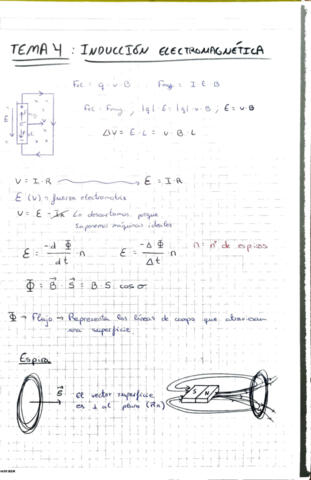 TEMA 4 : INDUCCIÓN ELECTROMAGNÉTICA
Fe = q · v · B    Fmg = I · l · B
Fe = Fmg , |q| · E = |q| · v · B , E = v · B
ΔV = E · L = v · B · L
V = I · R → ε = I · R
ε (V) = fuerza electromotriz
V = ε - Ir Lo descartamos porque
suponemos máquinas ideales
ε = -d Φ / dt · n    ε = -Δ Φ / Δt · n    n = nº de espiras
Φ = B · S = B · S · cos σ
Φ → Flujo → Representa las líneas de campo que atraviesan
una superficie.
Espira
S    el vector superficie
es ⊥ al plano
S N